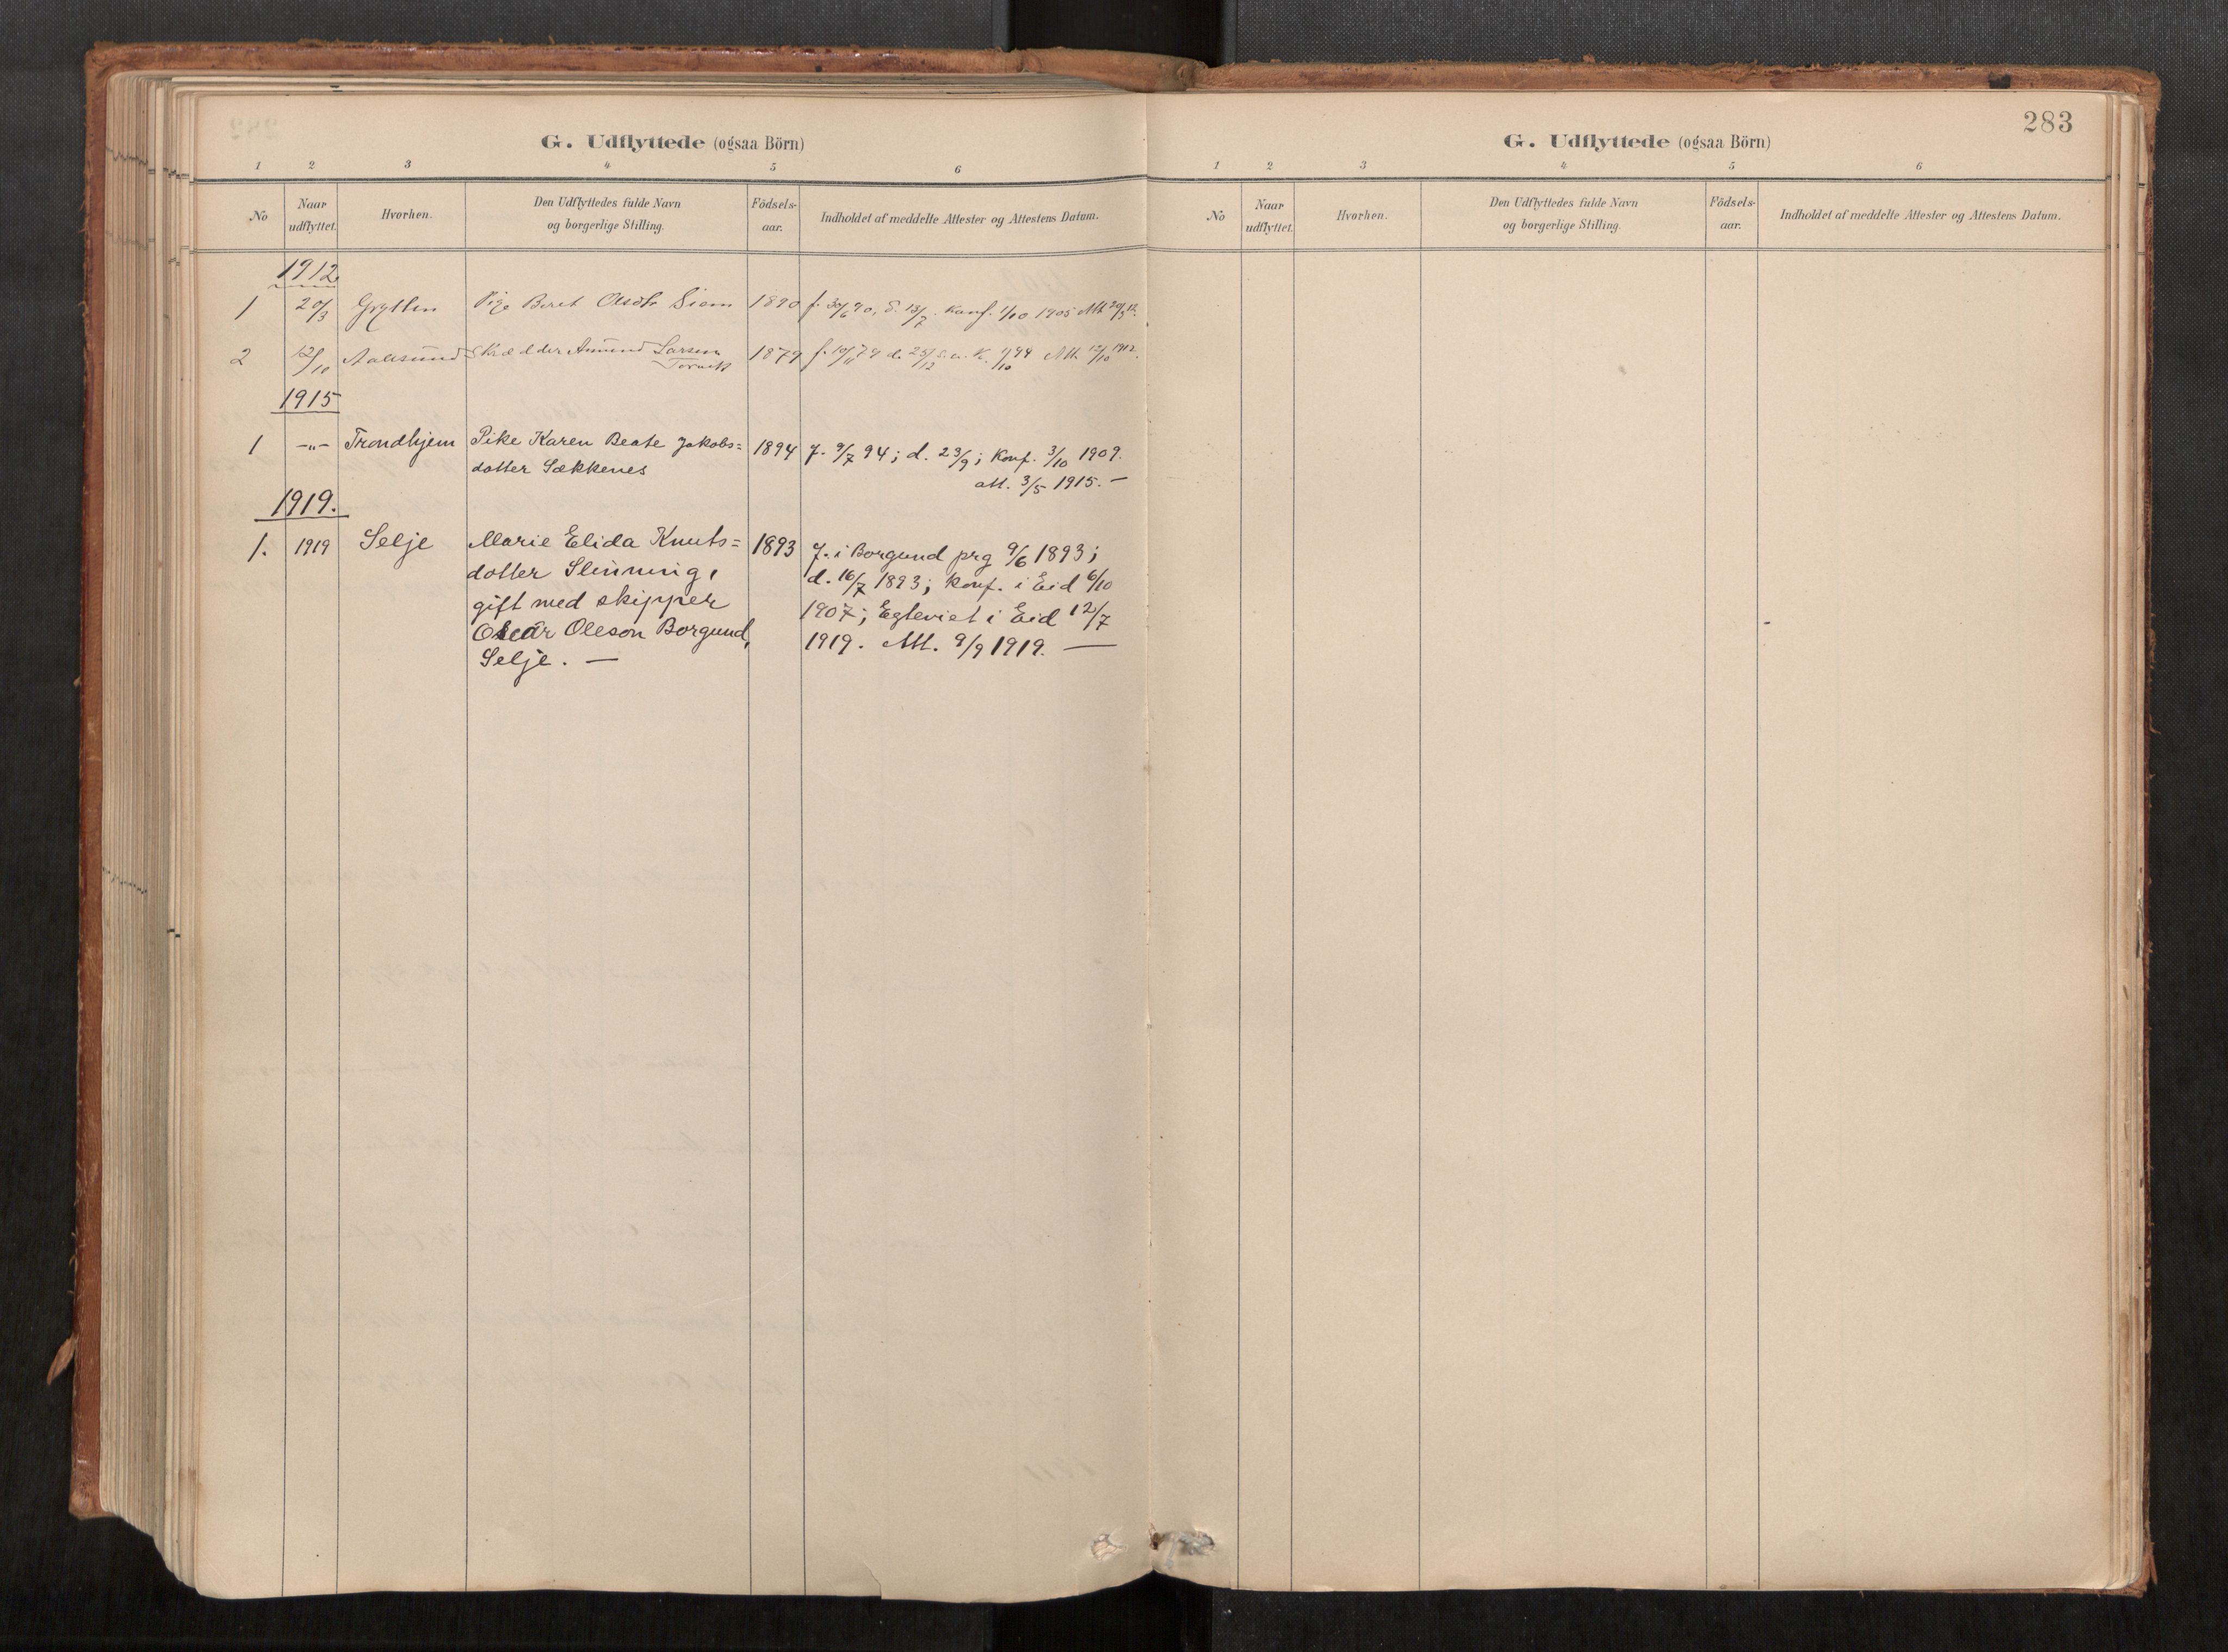 G. Udflyttede (ogsaa Börn)
1 2 3 4 5 6
No Naar udflyttet. Hvorhen. Den Udflyttedes fulde Navn og borgerlige Stilling. Födsels-aar. Indholdet af meddelte Attester og Attestens Datum.
1912
1 20/3 Grytten Pige Beret Olsdtr Siem 1890 f. 30/6 90, d. 13/7. Konf. 1/10 1905 Att. 20/3 12.
2 12/10 Aalesund Skrædder Amund Larsen 1879 f. 10/11 79 d. 25/12 s.a. K. 1/10 94 Att. 12/10 1912.
1915
1 -„- Trondhjem Pike Karen Beate Jakobs= 1894 f. 9/7 94; d. 23/9; Konf. 3/10 1909.
dotter Sækkenes
att. 3/5 1915. —
1919.
1. 1919 Selje Marie Elida Knuts= 1893 f. i Borgund prg 9/6 1893;
dotter Slinning, d. 16/7 1893; Konf. i Eid 6/10
gift med skipper 1907; Egteviet i Eid 12/7
Oscar Oleson Borgund, 1919. Att. 9/9 1919. —
Selje. —
283
G. Udflyttede (ogsaa Börn)
1 2 3 4 5 6
No Naar udflyttet. Hvorhen. Den Udflyttedes fulde Navn og borgerlige Stilling. Födsels-aar. Indholdet af meddelte Attester og Attestens Datum.